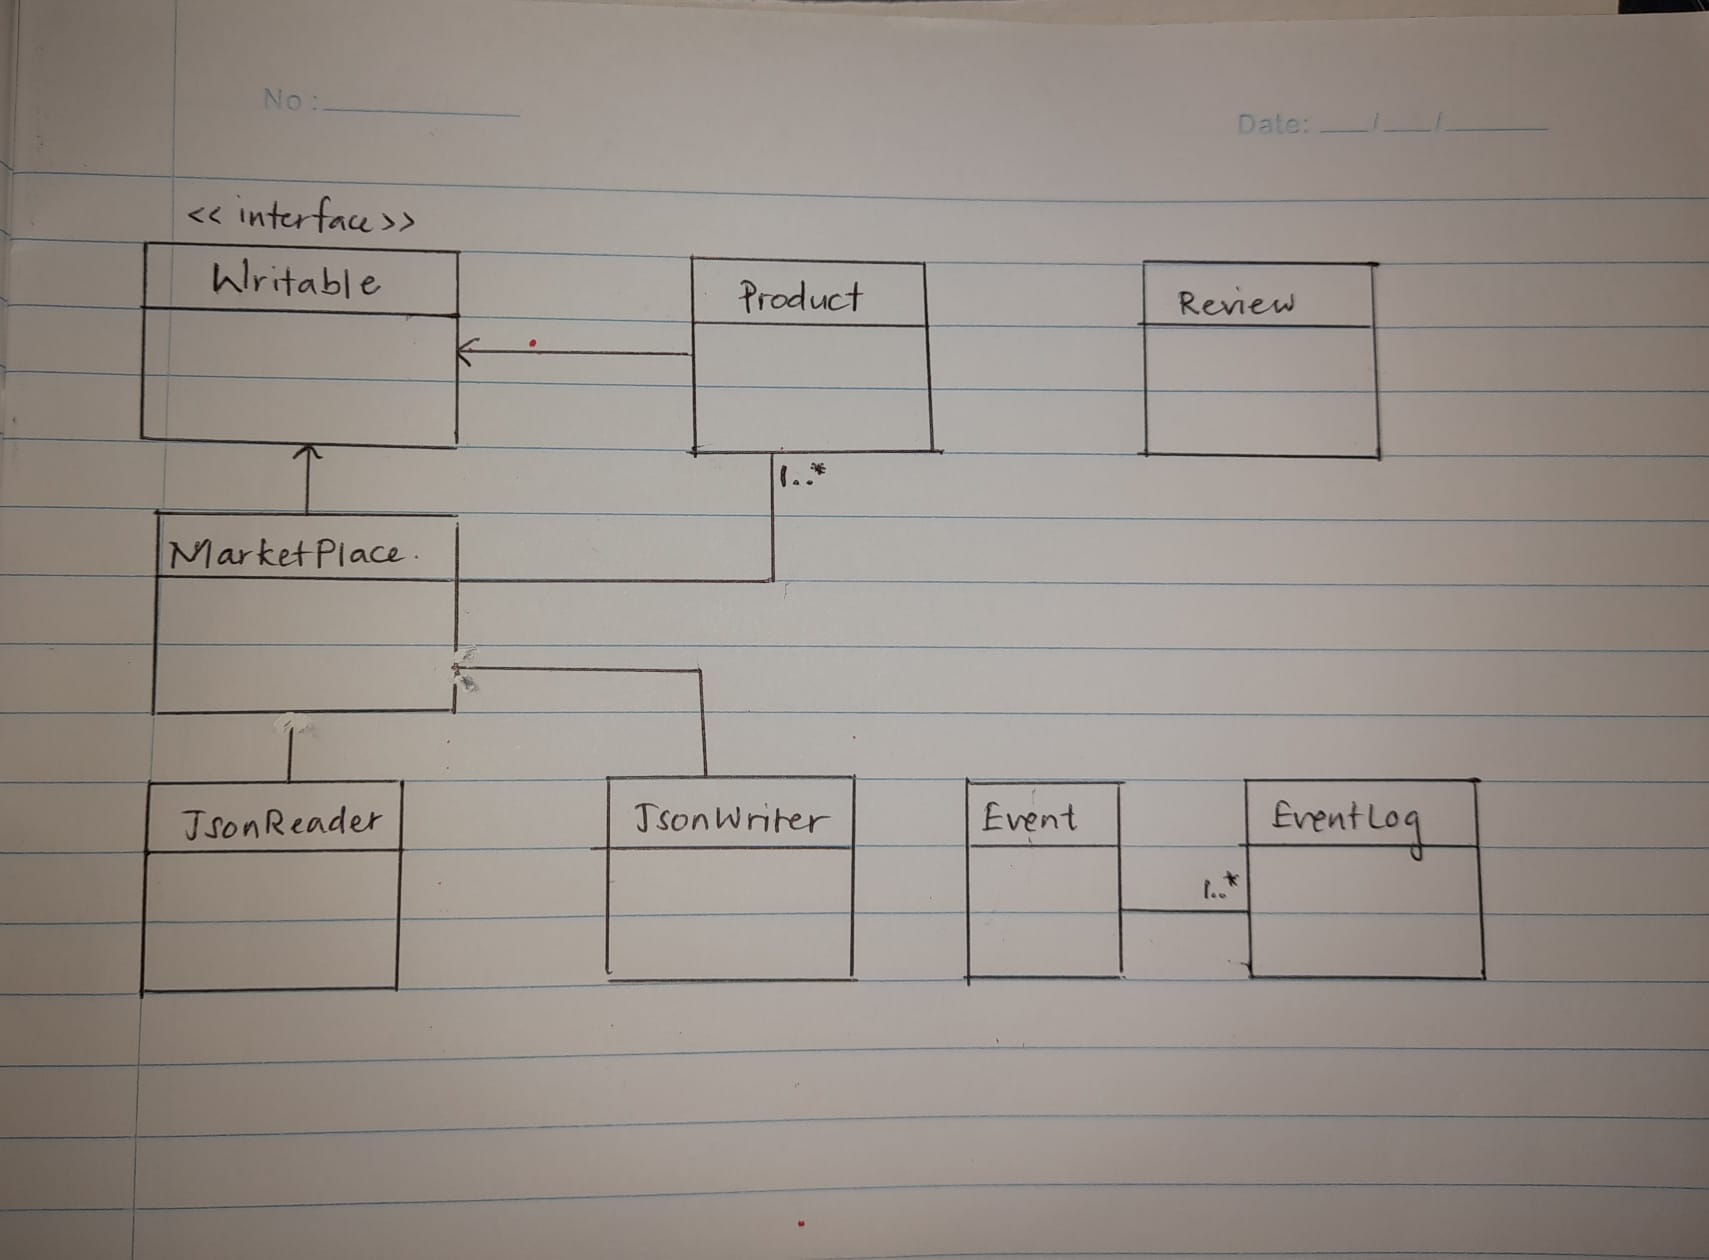 No :
Date: / /
<< interface >>
Writable
Product
Review
1..*
MarketPlace.
JsonReader
JsonWriter
Event
EventLog
1..*